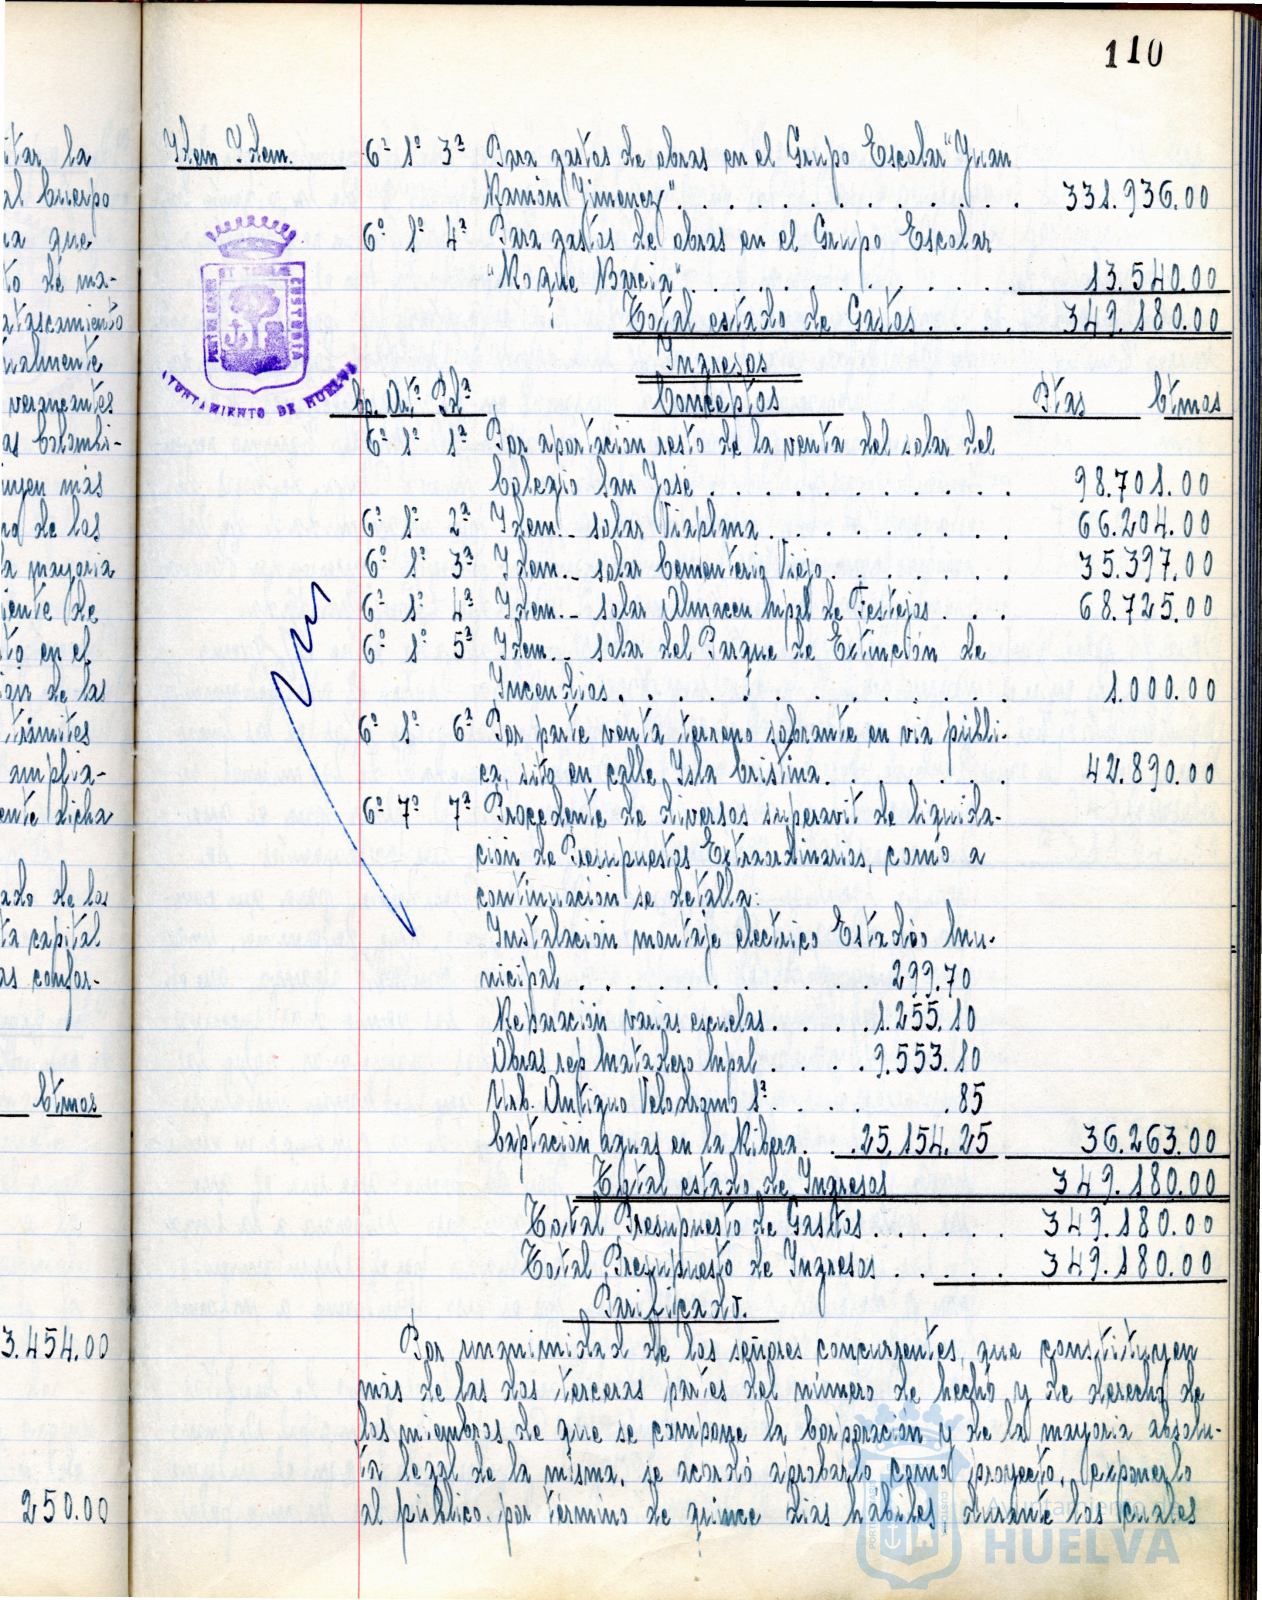 110
itar la
al Cuerpo
ia que
to de ma-
atascamiento
ualmente
veraneantes
as Colombi-
uyen más
no de los
la mayoria
iente de
to en el
ion de las
trámites
amplia-
ente dicha
ado de la
ta capital
as confor-
Ctmos
3.454.00
250.00
Idem Idem. 6º 1º 3ª Para gastos de obras en el Grupo Escolar "Juan
Ramón Jimenez". . . . . . . . . . 331.936.00
6º 1º 4ª Para gastos de obras en el Grupo Escolar
"Roque Barcia". . . . . . . . . . 13.540.00
Total estado de Gastos . . . . 349.180.00
PORTUS MARIS ET TERRAE CUSTODIA
AYUNTAMIENTO DE HUELVA
Ingresos
Cp. Artº Pdª Conceptos Ptas Ctmos
6º 1º 1ª Por aportación resto de la venta del solar del
Colegio San José . . . . . . . . . 98.701.00
6º 1º 2ª Idem.- solar Viaplana . . . . . . . . 66.204.00
6º 1º 3ª Idem.- solar Cementerio Viejo . . . . . . 35.397.00
6º 1º 4ª Idem.- solar Almacen Mpal de Festejos . . . 68.725.00
6º 1º 5ª Idem.- solar del Parque de Extinción de
Incendios . . . . . . . . . . . 1.000.00
6º 1º 6ª Por parte venta terreno sobrante en via públi-
ca, sito en calle Isla Cristina . . . . . 42.890.00
6º 7º 7ª Procedente de diversos superavit de liquida-
ción de Presupuestos Extraordinarios, como a
continuación se detalla:
Instalación montaje electrico Estadio Mu-
nicipal . . . . . . . . . . 299.70
Reparación varias escuelas . . . . . 1.255.10
Obras rep Matadero Mpal . . . . . 9.553.10
Urb. Antiguo Velodromo 1ª . . . . . . 85
Captación aguas en la Ribera . . . 25.154.25 36.263.00
Total estado de Ingresos 349.180.00
Total Presupuesto de Gastos . . . . . . 349.180.00
Total Presupuesto de Ingresos . . . . . 349.180.00
Parificado.
Por unanimidad de los señores concurrentes, que constituyen
más de las dos terceras partes del número de hecho y de derecho de
los miembros de que se compone la Corporación y de la mayoria absolu-
ta legal de la misma, se acordó aprobarlo como proyecto, exponerlo
al público por término de quince dias hábiles durante los cuales
Ayuntamiento de
HUELVA